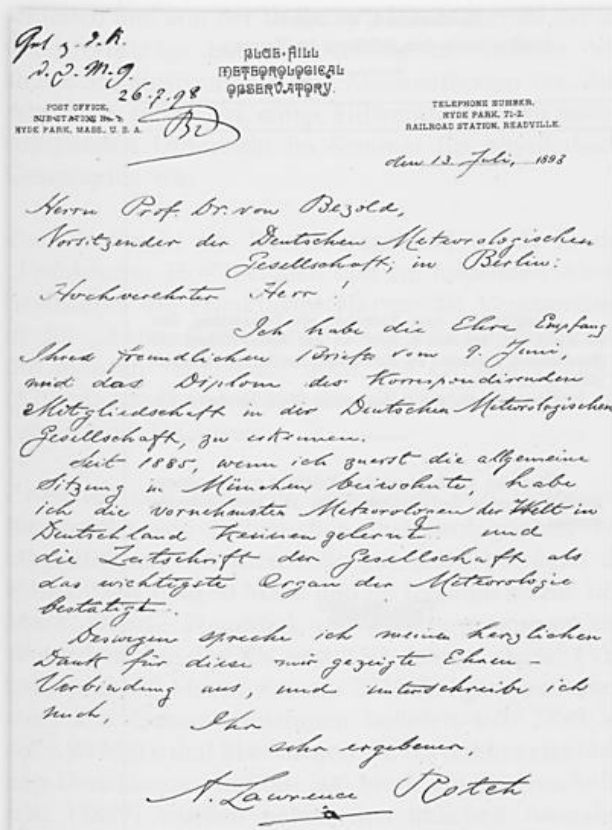 26.7.98
Bz
BLUE-HILL
METEOROLOGICAL
OBSERVATORY.
POST OFFICE,
SUB-STATION No. 2,
HYDE PARK, MASS., U. S. A.
TELEPHONE NUMBER,
HYDE PARK, 71-2.
RAILROAD STATION, READVILLE.
den 13. Juli, 1898
Herrn Prof. Dr. von Bezold,
Vorsitzender der Deutschen Meteorologischen
Gesellschaft, in Berlin:
Hochverehrter Herr!
Ich habe die Ehre Empfang
Ihres freundlichen Briefes vom 9. Juni,
und das Diplom des Korrespondirenden
Mitgliedschaft in der Deutschen Meteorologischen
Gesellschaft, zu erkennen.
Seit 1885, wenn ich zuerst die allgemeine
Sitzung in München beiwohnte, habe
ich die vornehmsten Meteorologen der Welt in
Deutschland kennen gelernt und
die Zeitschrift der Gesellschaft als
das wichtigste Organ der Meteorologie
bestätigt.
Deswegen spreche ich meinen herzlichen
Dank für diese mir gezeigte Ehren-
Verbindung aus, und unterschreibe ich
mich,
Ihr
sehr ergebener,
A. Lawrence Rotch